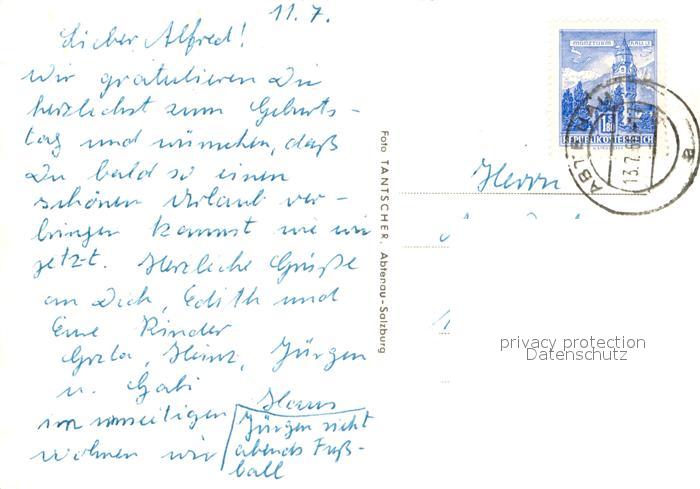 11.7.
Lieber Alfred!
Wir gratulieren Dir
herzlichst zum Geburts-
tag und wünschen, daß
Du bald so einen
schönen Urlaub ver-
bringen kannst wie wir
jetzt. Herzliche Grüße
an Dich, Edith und
Eure Kinder
Greta, Heinz, Jürgen
u. Gabi
im umseitigen Haus
wohnen wir
Jürgen sieht
abends Fuß-
ball
Foto TANTSCHER, Abtenau-Salzburg
MÜNZTURM HALL I.T.
1.80
REPUBLIK ÖSTERREICH
ABTENAU
13.7.6
a
Herrn
privacy protection
Datenschutz